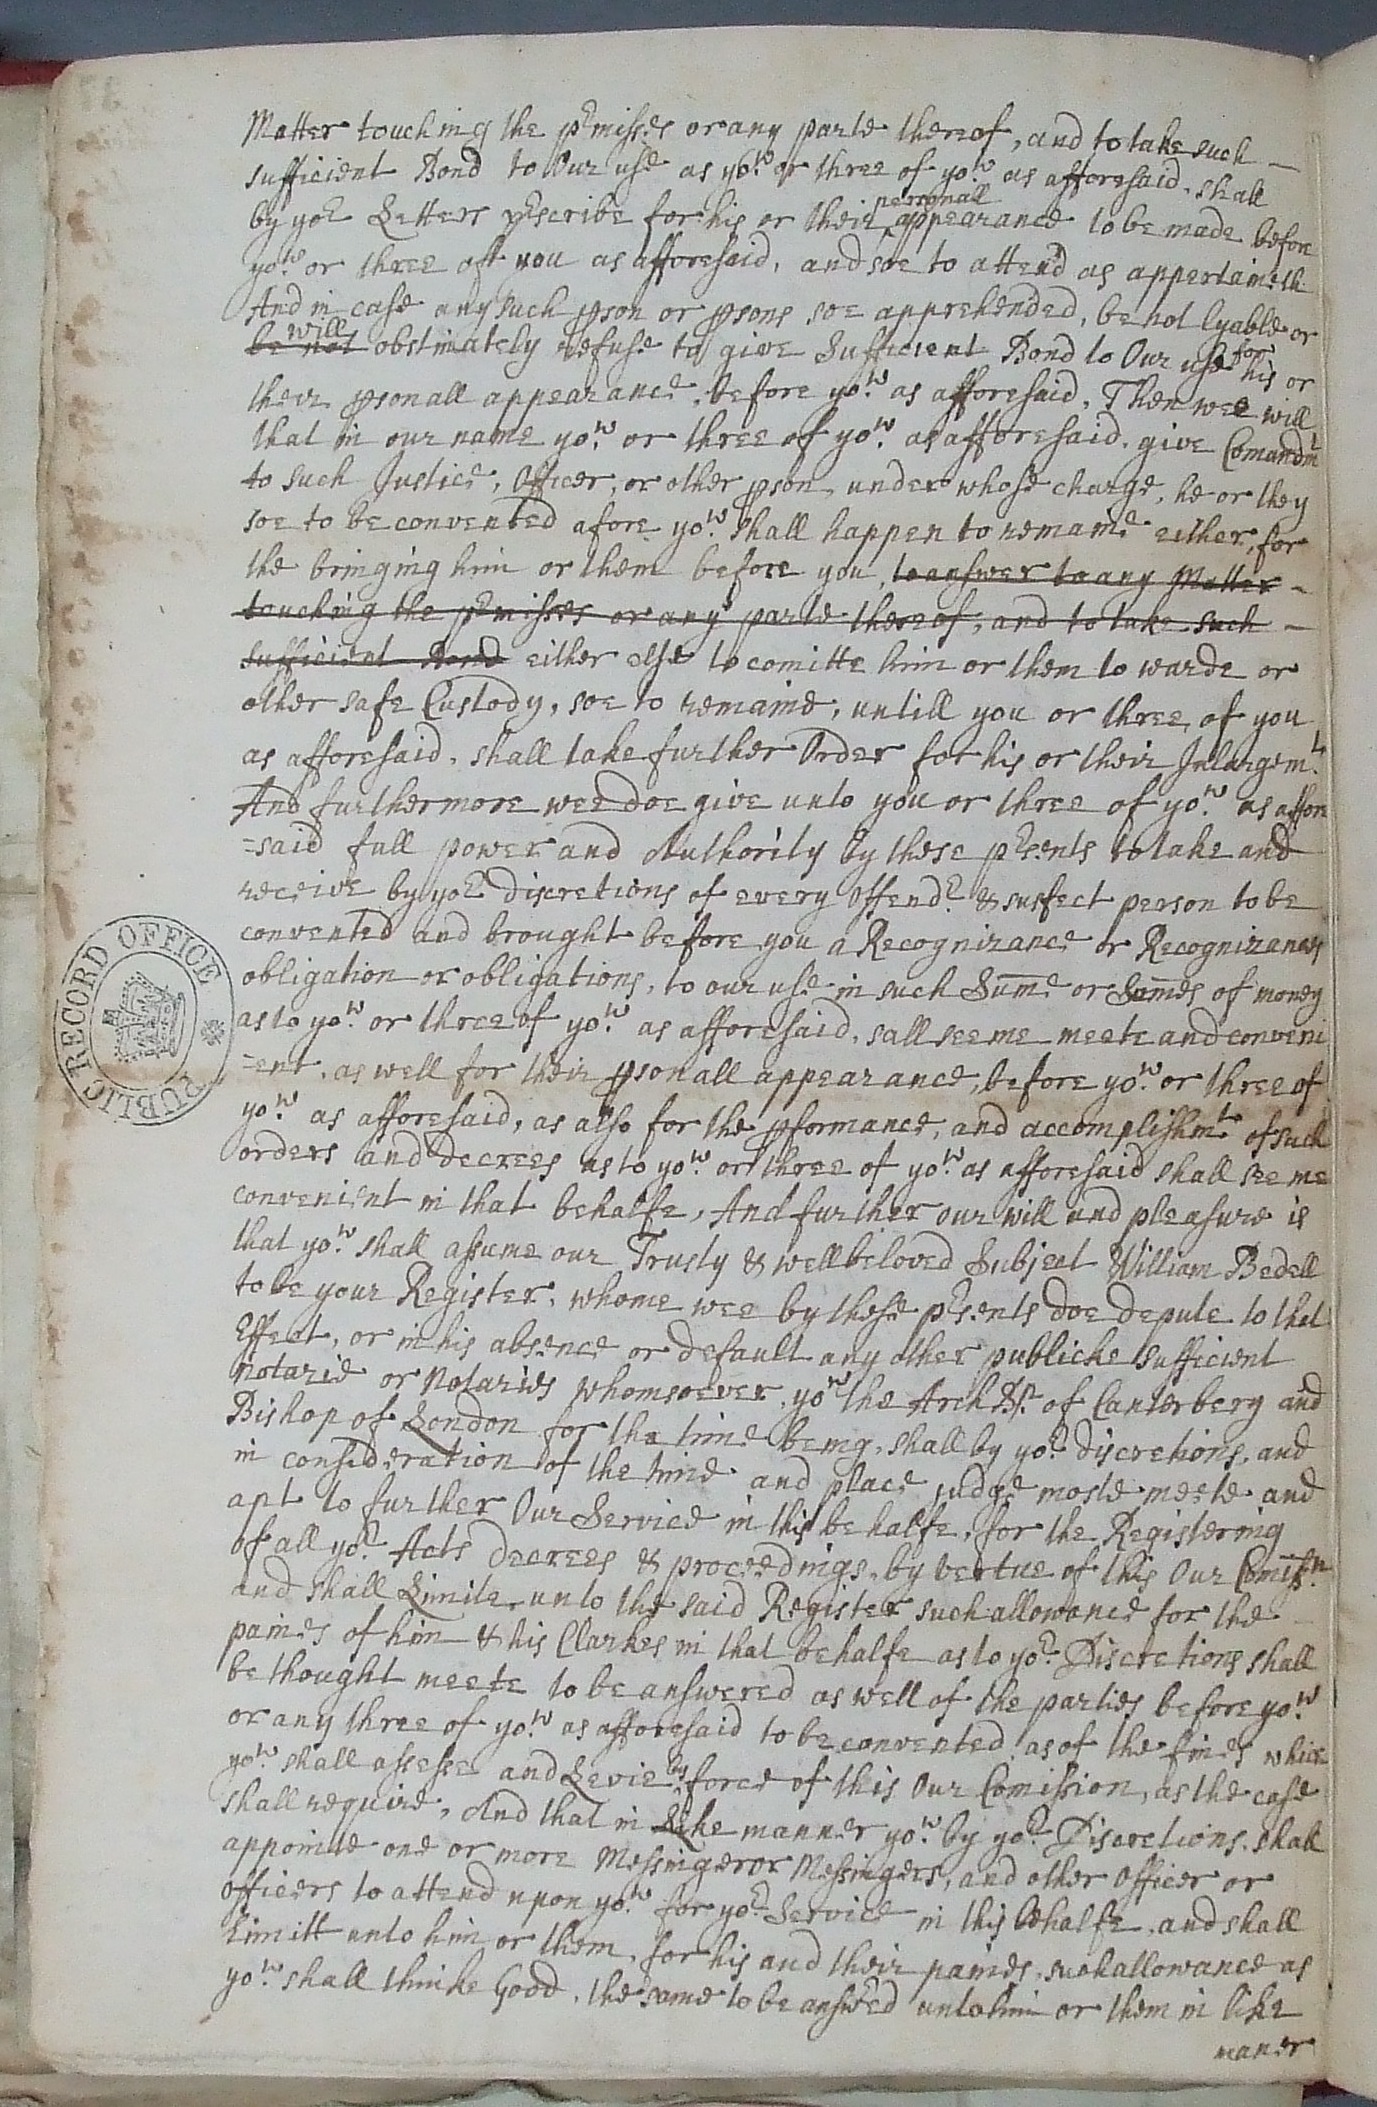 Matter touching the p^rmisses or any parte thereof, and to take such -
sufficient Bond to Our use as yo^w. or three of yo^w. as afforesaid, shall
personall
by yo^r Letters p^rscribe for his or their ^ appearance to be made before
yo^w. or three off you as afforesaid, and soe to attend as appertaineth
And in case any such pson or psons soe apprehended, be not lyable or
will
be not obstinately refuse to give Sufficient Bond to Our use for his or
their psonall appearance, before yo^w. as afforesaid, Then wee will
that in our name yo^w. or three of yo^w. as afforesaid, give Comandm^t
to such Justice, Officer, or other pson, under whose charge, he or they
soe to be convented afore yo^w. shall happen to remaine either, for
the bringing him or them before you, to answer to any Matter -
touching the p^rmisses or any parte thereof, and to take such -
sufficient Bond either else to comitte him or them to warde or
other safe Custody, soe to remaine, untill you or three of you
as afforesaid, shall take further Order for his or their Inlargem^t.
And furthermore wee doe give unto you or three of yo^w. as affore
=said full power and Authority by these p^rsents to take and
receive by yo^r discretions of every Offend^r. & suspect person to be
convented and brought before you a Recognizance or Recognizances
obligation or obligations, to our use in such Sume or Sumes of money
as to yo^w. or three of yo^w. as afforesaid, sall seeme meete and conveni
=ent, as well for their psonall appearance, before yo^w. or three of
yo^w. as afforesaid, as also for the pformance, and accomplishm^t. of such
orders and decrees as to yo^w. or three of yo^w. as afforesaid shall seeme
convenient in that behalfe, And further our will and pleasure is
that yo^w. shall assume our Trusty & wellbeloved Subject William Bedell
to be your Register, whome wee by these p^rsents doe depute to that
Effect, or in his absence or default any other publicke sufficient
Notarie or Notaries whomsoever, yo^w the Arch Bp. of Canterbery and
Bishop of London for the time being, shall by yo^r. discretions, and
in consideration of the time and place judge moste meete and
apt to further Our Service in this behalfe, for the Registering
of all yo^r. Acts decrees & proceedings, by vertue of this Our Comiss^n.
and shall Limite unto the said Register such allowance for the
paines of him & his Clarkes in that behalfe as to yo^r. Discretions shall
be thought meete to be answered as well of the parties before yo^w.
or any three of yo^w. as afforesaid to be convented, as of the fines which
yo^w. shall assesse and Levie by force of this Our Comission, as the case
shall require, And that in Like manner yo^w. by yo^r. Discretions, shall
appointe one or more Messinger or Messingers, and other Officer or
officers to attend upon yo^w. for yo^r. Service in this behalfe, and shall
Limitt unto him or them, for his and their paines, such allowance as
yo^w. shall thinke Good, the same to be answ^red unto him or them in like
maner
PUBLIC RECORD OFFICE